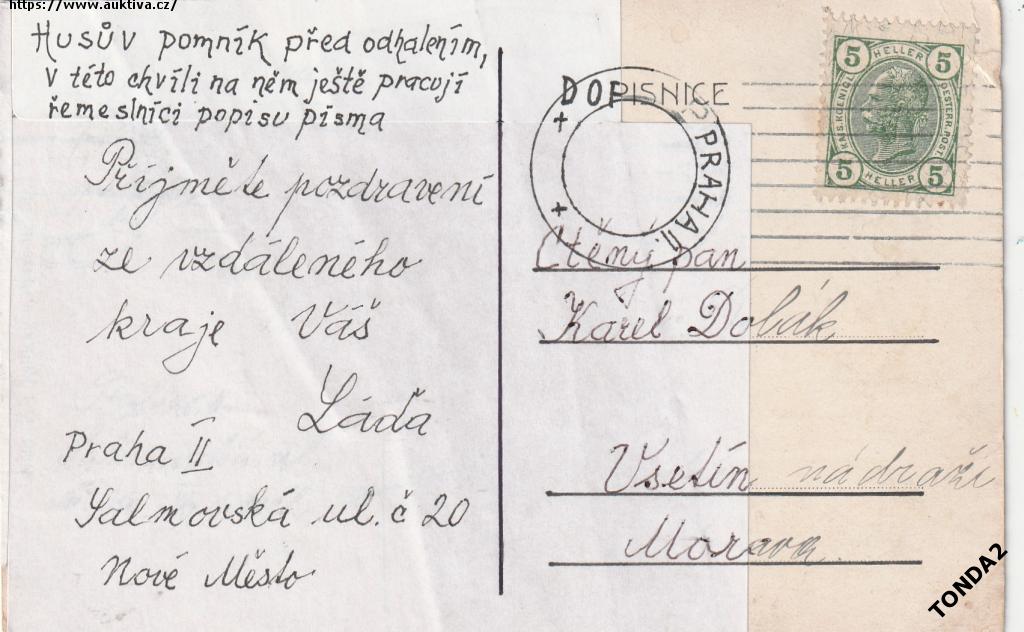 https://www.auktiva.cz/
Husův pomník před odhalením,
v této chvíli na něm ještě pracují
řemeslníci popisu písma
Příjměte pozdravení
ze vzdáleného
kraje Váš
Láďa
Praha II
Salmovská ul. č 20
Nové Město
DOPISNICE
PRAHA II.
5 HELLER 5
KAIS. KOENIGL. OESTERR. POST
5 HELLER 5
Ctěný pan
Karel Dobák
Vsetín nádraží
Morava
TONDA2